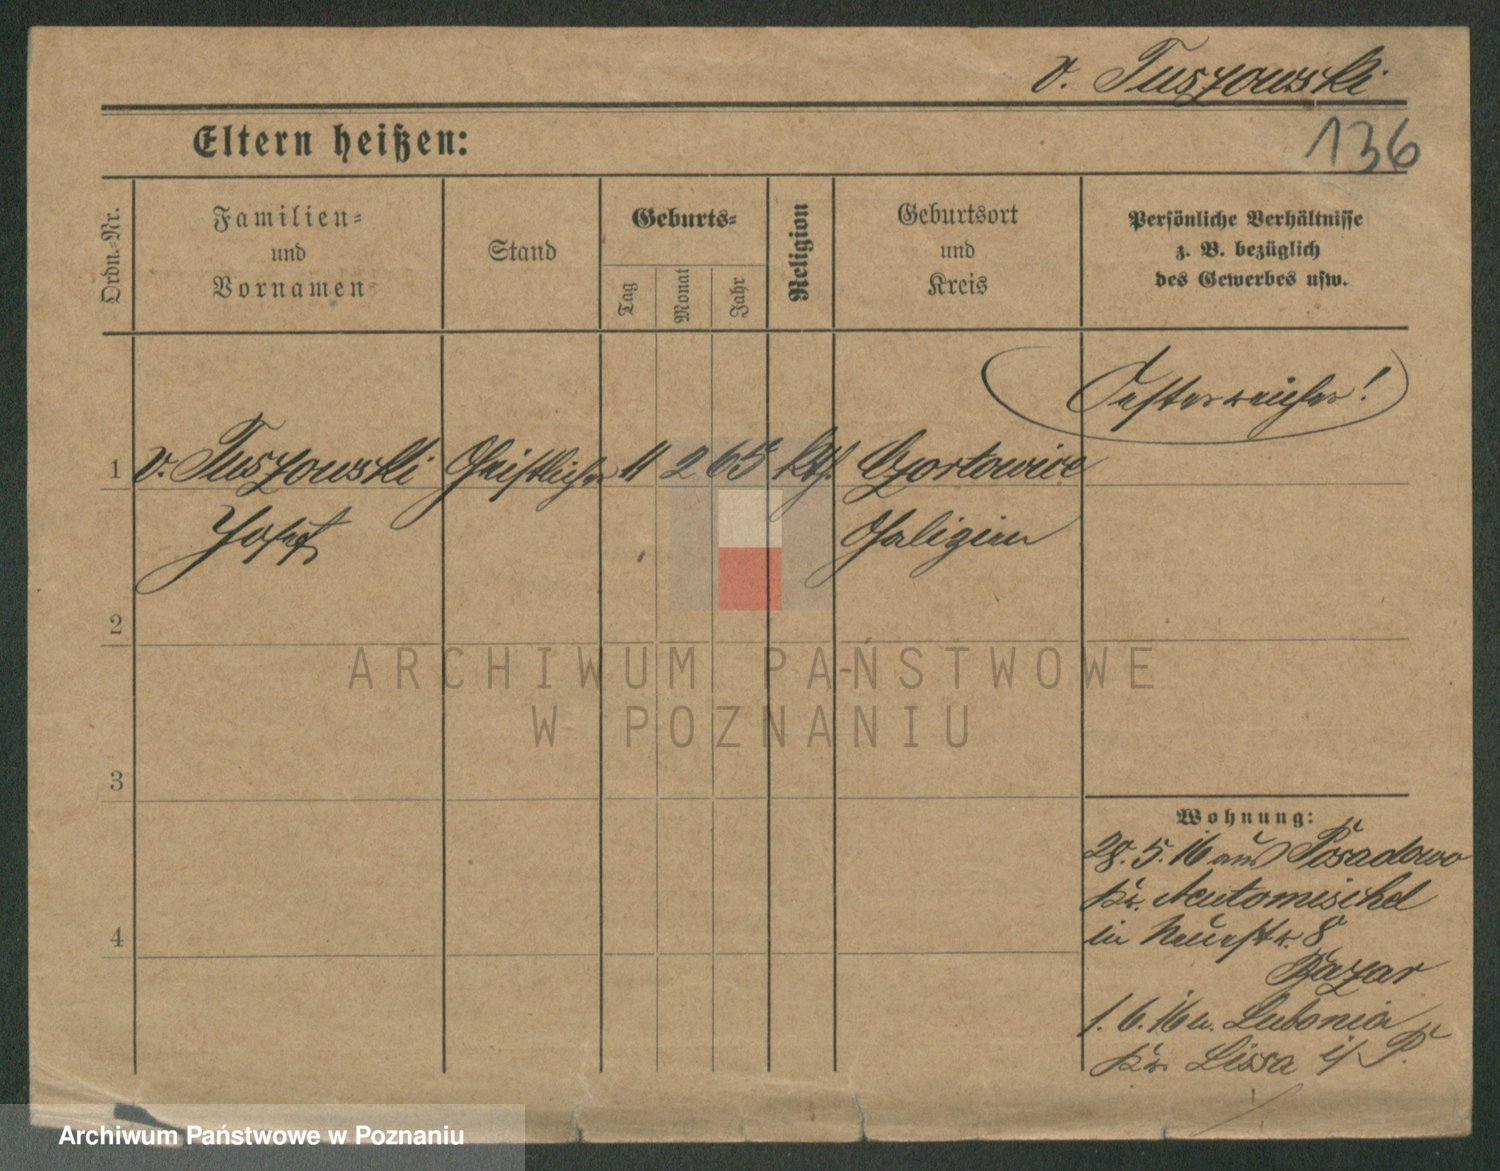 v. Tuszowski
136
Eltern heißen:
Ordn.-Nr.
Familien-
und
Vornamen
Stand
Geburts-
Tag
Monat
Jahr
Religion
Geburtsort
und
Kreis
Persönliche Verhältnisse
z. B. bezüglich
des Gewerbes usw.
Oesterreicher!
1 v. Tuszowski Geistlicher 11 2 65 kth. Czortowice
Josef Galizien
2
3
4
ARCHIWUM PAŃSTWOWE
W POZNANIU
Wohnung:
28. 5. 16 aus Posadowo
Kr. Neutomischel
in Neuestr. 8
Bazar
1. 6. 16 n. Lubonia
Kr. Lissa i/P.
Archiwum Państwowe w Poznaniu